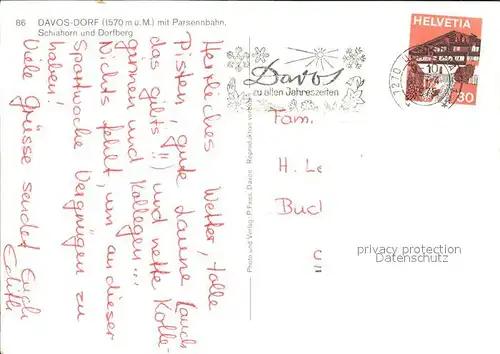 86 DAVOS-DORF (1570 m u. M.) mit Parsennbahn,
Schiahorn und Dorfberg
Herrliches Wetter, tolle
Pisten, gute Laune (auch
das gibts!!) und nette Kolle-
ginnen und Kollegen...
Nichts fehlt, um an dieser
Sportwoche Vergnügen zu
haben!
Viele Grüsse sendet Euch
Edith
Photo und Verlag: P. Fass, Davos Reproduktion verboten
Davos
zu allen Jahreszeiten
HELVETIA
30
7270
Fam.
H. Le
Buch
privacy protection
Datenschutz